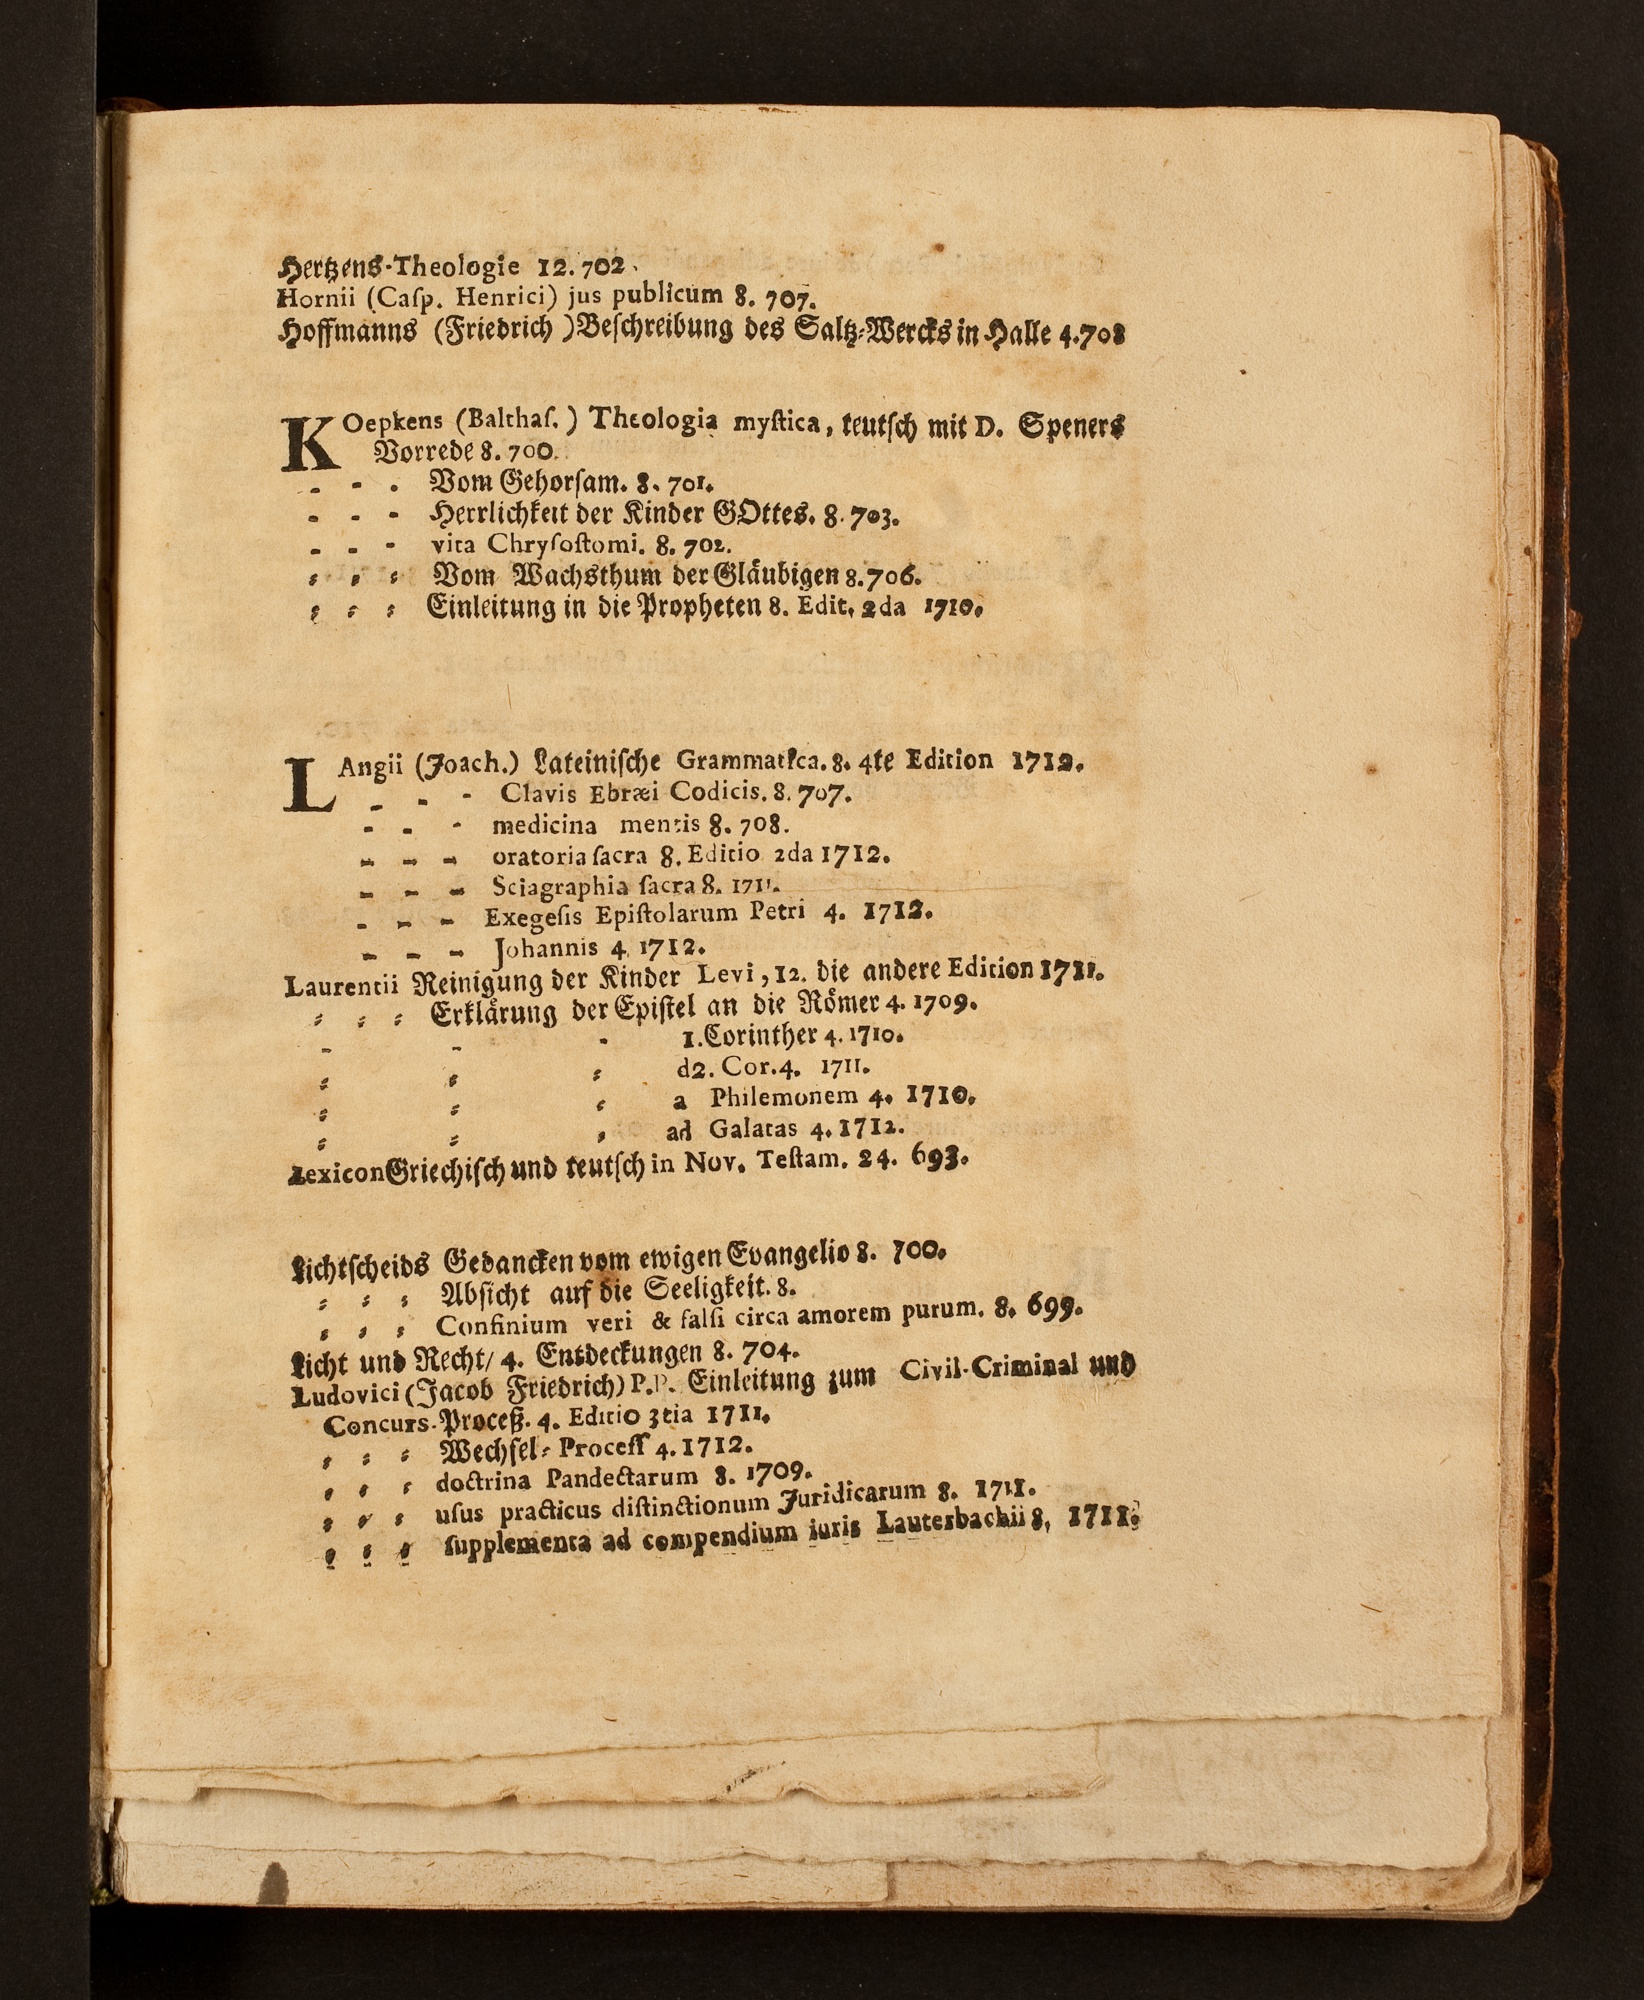 Hertzens-Theologie 12. 702.
Hornii (Caſp. Henrici) jus publicum 8. 707.
Hoffmanns (Friedrich) Beſchreibung des Saltz-Wercks in Halle 4. 708
KOepkens (Balthaſ.) Theologia myſtica, teutſch mit D. Speners
Vorrede 8. 700.
- - - Vom Gehorſam. 8. 701.
- - - Herrlichkeit der Kinder GOttes. 8. 703.
- - - vita Chryſoſtomi. 8. 702.
⸗ ⸗ ⸗ Vom Wachsthum der Gläubigen 8. 706.
⸗ ⸗ ⸗ Einleitung in die Propheten 8. Edit. 2da 1710.
LAngii (Joach.) Lateiniſche Grammatica. 8. 4te Edition 1712.
- - - Clavis Ebræi Codicis. 8. 707.
- - - medicina mentis 8. 708.
- - - oratoria ſacra 8. Editio 2da 1712.
- - - Sciagraphia ſacra 8. 1711.
- - - Exegeſis Epiſtolarum Petri 4. 1712.
- - - Johannis 4. 1712.
Laurentii Reinigung der Kinder Levi, 12. die andere Edition 1711.
⸗ ⸗ ⸗ Erklärung der Epiſtel an die Römer 4. 1709.
- - - 1. Corinther 4. 1710.
⸗ ⸗ ⸗ d2. Cor. 4. 1711.
⸗ ⸗ ⸗ a Philemonem 4. 1710.
⸗ ⸗ ⸗ ad Galatas 4. 1712.
Lexicon Griechiſch und teutſch in Nov. Teſtam. 24. 693.
Lichtſcheids Gedancken vom ewigen Evangelio 8. 700.
⸗ ⸗ ⸗ Abſicht auf die Seeligkeit. 8.
⸗ ⸗ ⸗ Confinium veri & falſi circa amorem purum. 8. 699.
Licht und Recht/ 4. Entdeckungen 8. 704.
Ludovici (Jacob Friedrich) P.P. Einleitung zum Civil-Criminal und
Concurs-Proceß. 4. Editio 3tia 1711.
⸗ ⸗ ⸗ Wechſel⸗Proceſſ 4. 1712.
⸗ ⸗ ⸗ doctrina Pandectarum 8. 1709.
⸗ ⸗ ⸗ uſus practicus diſtinctionum Juridicarum 8. 1711.
⸗ ⸗ ⸗ ſupplementa ad compendium iuris Lauterbachii 8. 1711.